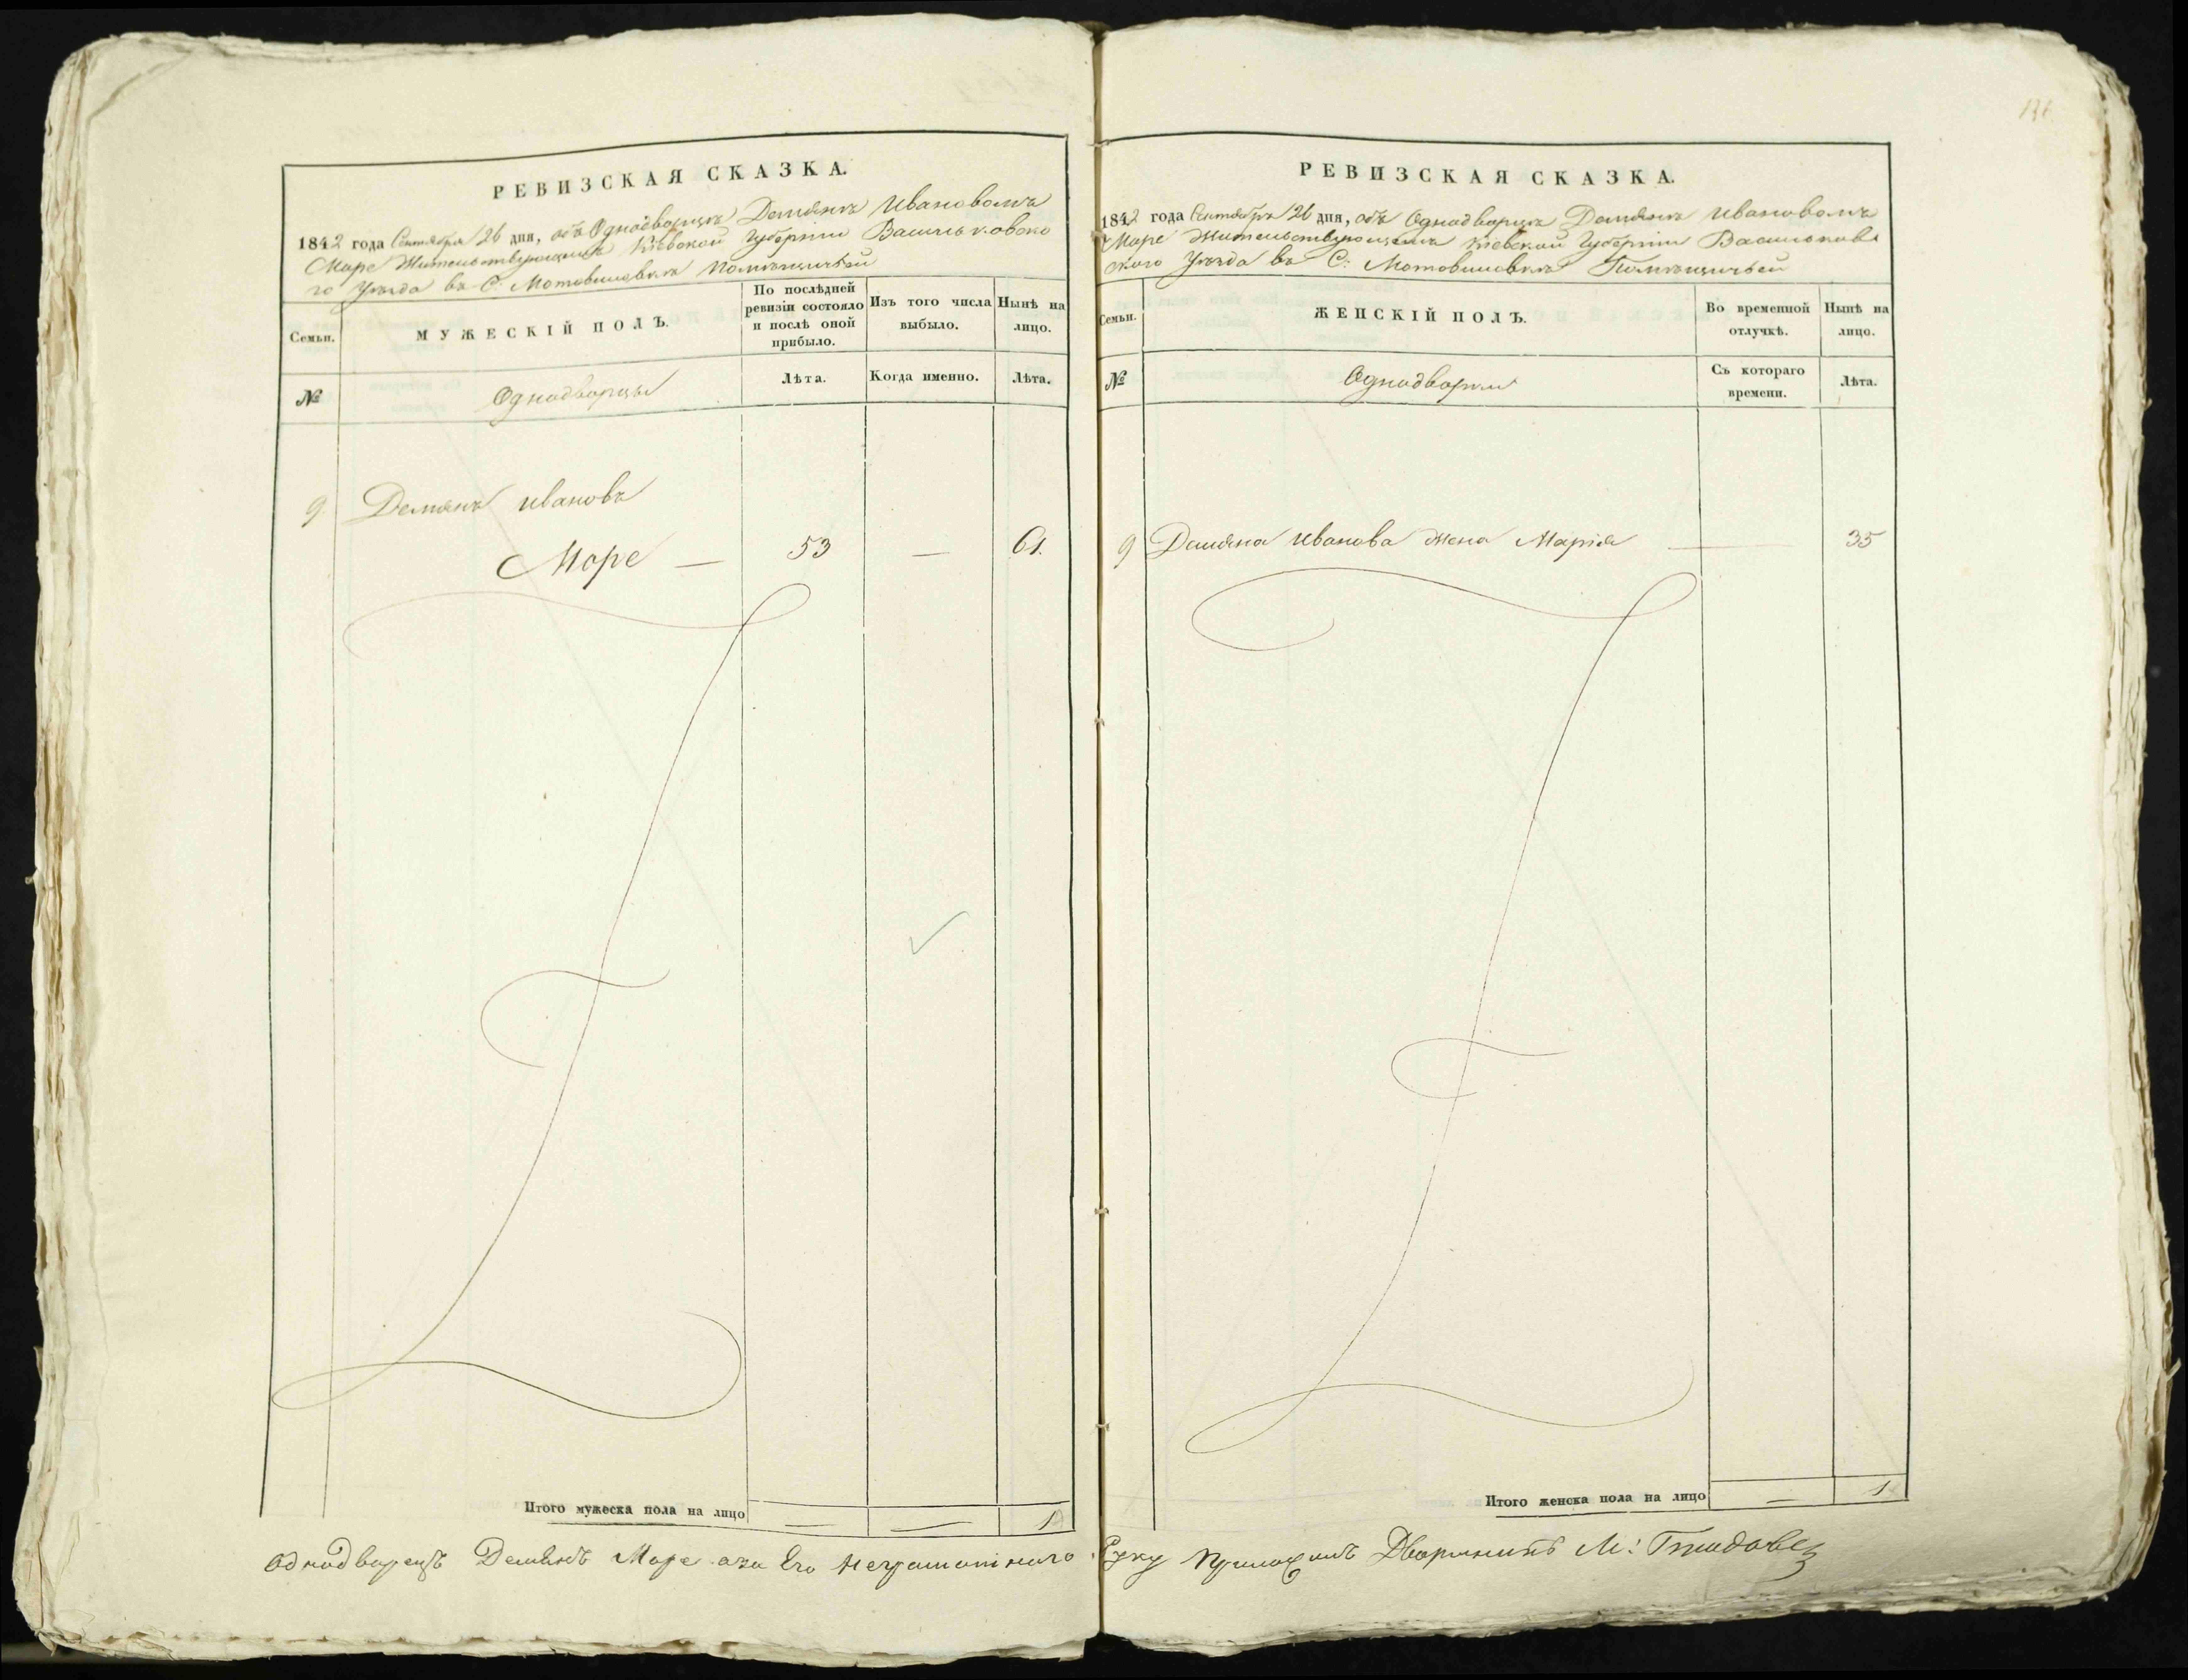 РЕВИЗСКАЯ СКАЗКА.
1842 года Сентября 26 дня, объ Однодворцѣ Демянѣ Ивановомъ
Море Жительствующемъ Кіевской Губерніи Васильковско
го Уѣзда въ С. Мотовиловкѣ Помѣщичьей
Семьи.
МУЖЕСКІЙ ПОЛЪ.
По послѣдней ревизіи состояло и послѣ оной прибыло.
Изъ того числа выбыло.
Нынѣ на лицо.
№
Однодворцы
Лѣта.
Когда именно.
Лѣта.
9 Демянъ Ивановъ
Море — 53 — 61.
Итого мужеска пола на лицо — — 1
РЕВИЗСКАЯ СКАЗКА.
1842 года Сентября 26 дня, объ Однодворцѣ Демянѣ Ивановомъ
Море Жительствующемъ Кіевской Губерніи Васильковс
кого Уѣзда въ С. Мотовиловкѣ Помѣщичьей
Семьи.
ЖЕНСКІЙ ПОЛЪ.
Во временной отлучкѣ.
Нынѣ на лицо.
№
Однодворки
Съ котораго времени.
Лѣта.
9 Демяна Иванова жена Марія — 35
Итого женска пола на лицо — 1
Однодворецъ Демянъ Море аза Его Неграмотного Руку Приложилъ Дворянинъ М: